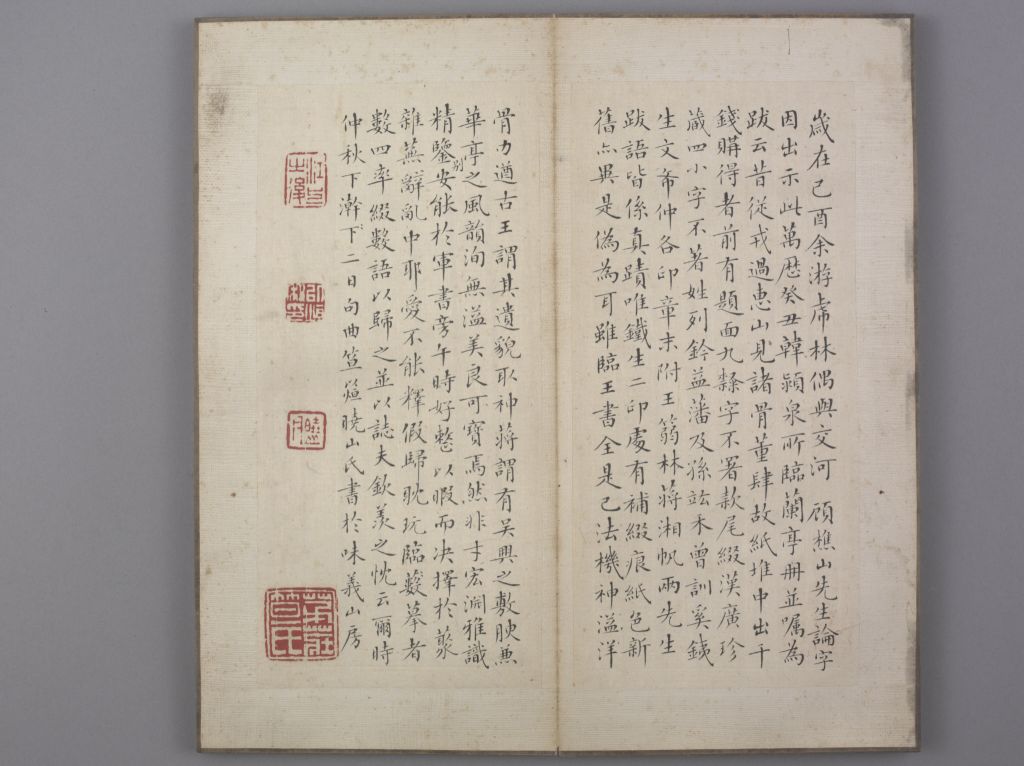 歲在己酉余游虎林偶與交河　顧樵山先生論字
因出示此萬歷癸丑韓潁泉所臨蘭亭冊並囑為
跋云昔從戎過惠山見諸骨董肆故紙堆中出千
錢購得者前有題面九隸字不署款尾綴漢廣珍
藏四小字不著姓列鈐益藩及孫竑禾曾訓奚鐵
生文
仲各印章末附王篛林蔣湘帆兩先生
跋語皆係真蹟唯鐵生二印處有補綴痕紙色新
舊亦異是偽為耳雖臨王書全是己法機神溢洋
骨力遒古王謂其遺貌取神蔣謂有吳興之敷腴兼
華亭之風韻洵無溢美良可寶焉然非才宏淵雅識
精鑒別安能於軍書旁午時好整以暇而決擇於叢
雜蕪辭亂中耶愛不能釋假歸耽玩臨藪摹者
數四率綴數語以歸之並以誌夫欽羨之忱云爾時
仲秋下澣下二日句曲笪
曉山氏書於味義山房
笪氏